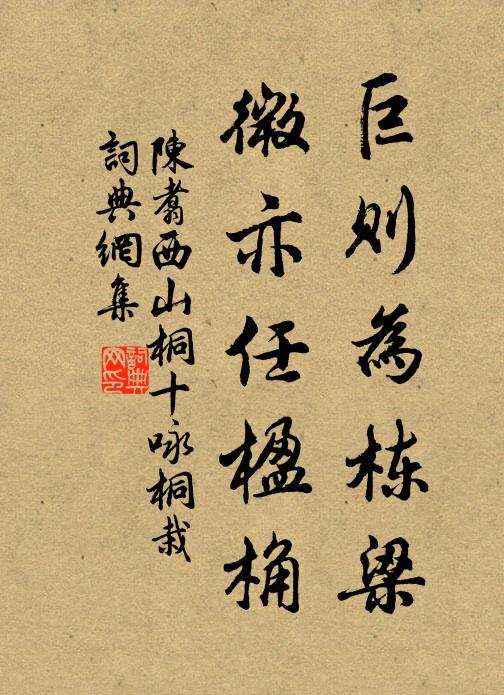 巨则為栋梁
微亦任楹桷
陳翥西山桐十咏桐栽
詞典網集
詞典网印